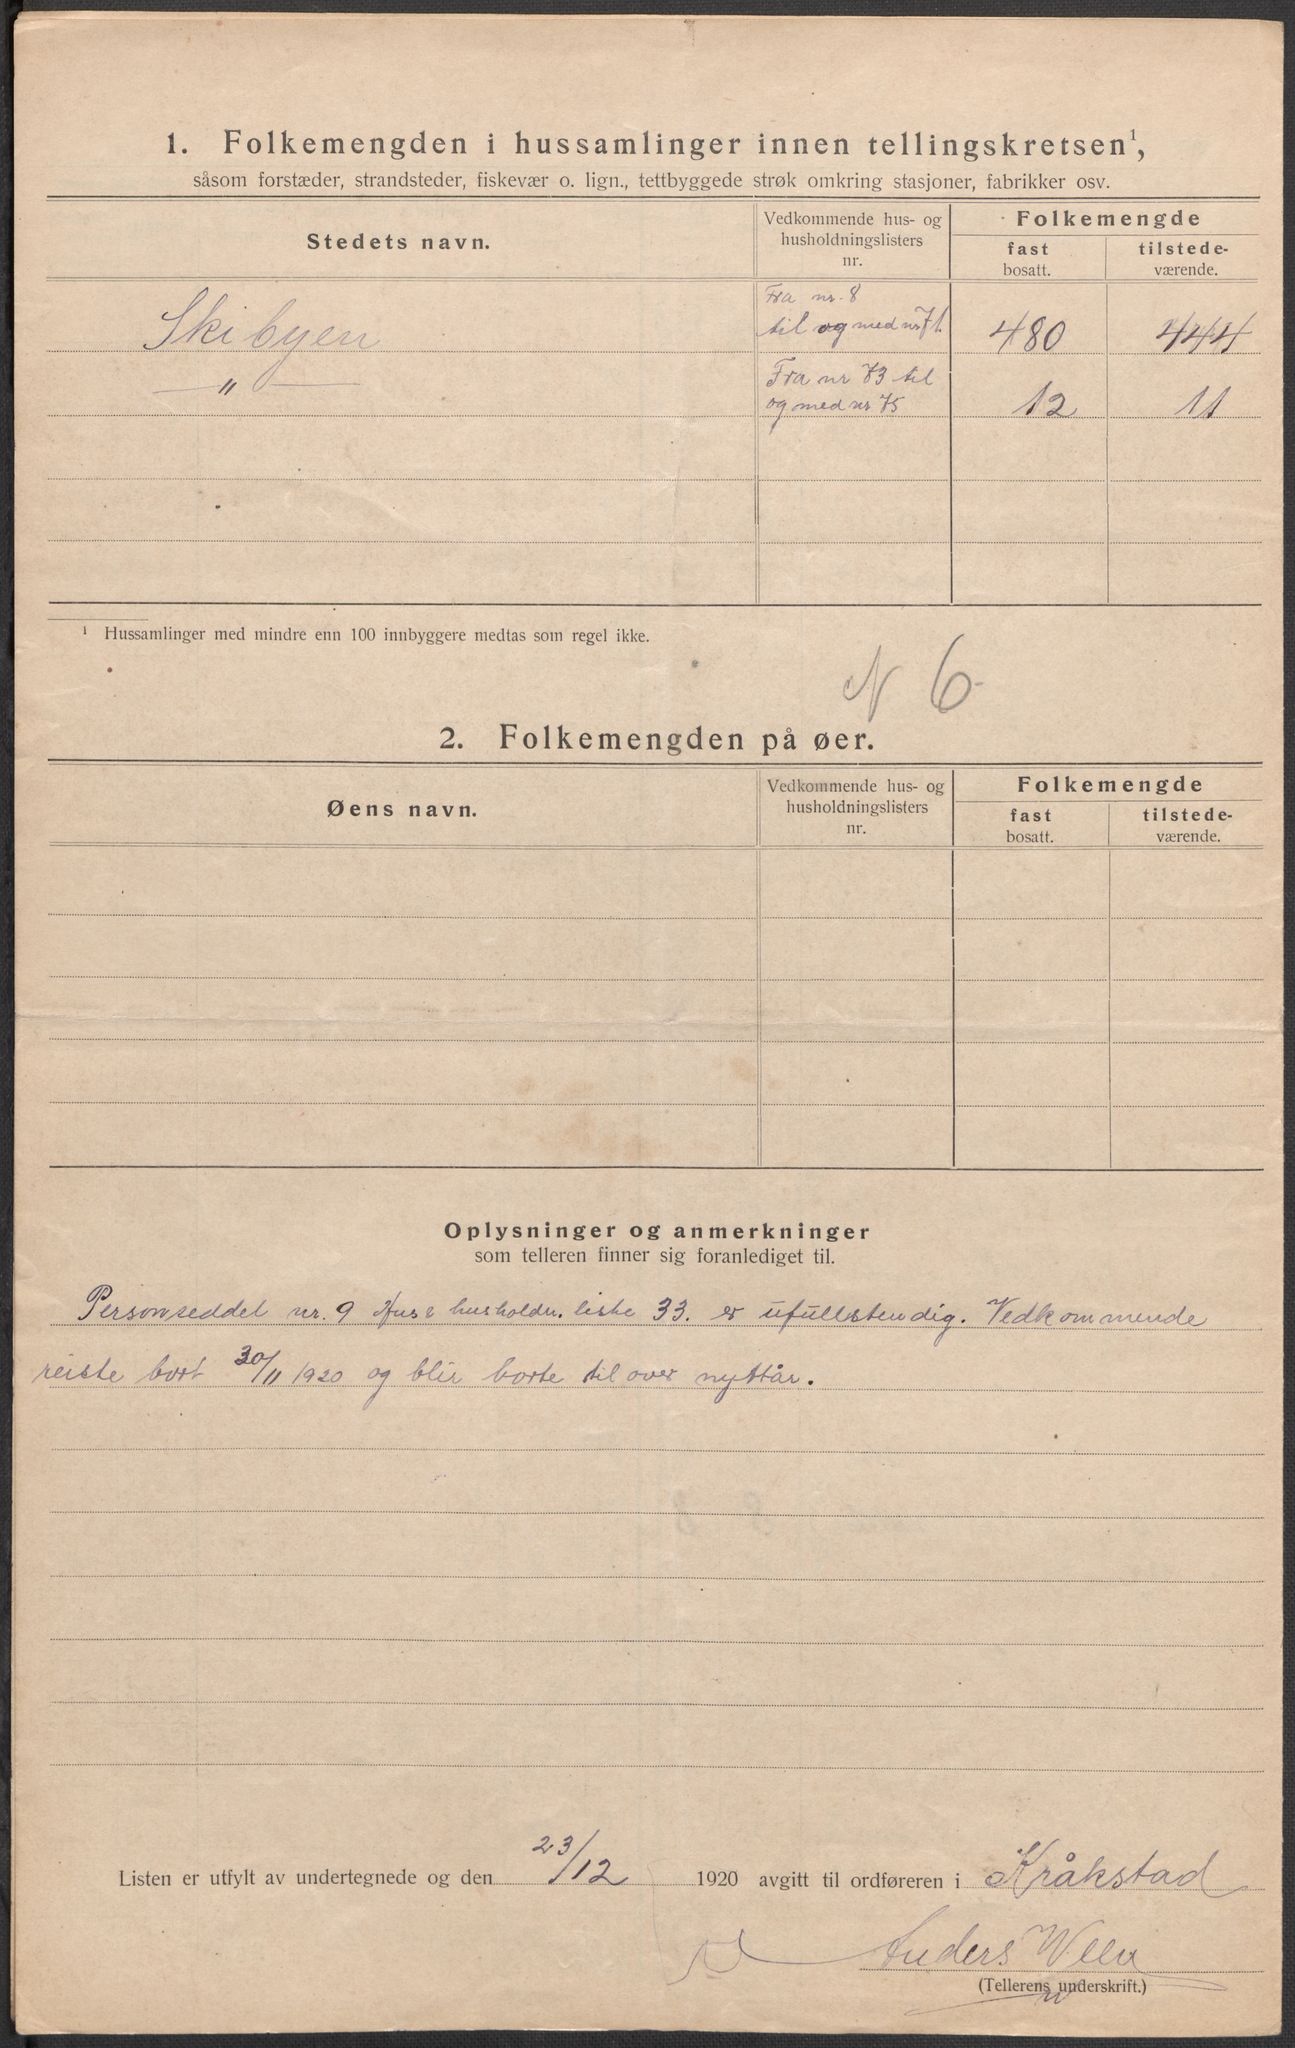 1. Folkemengden i hussamlinger innen tellingskretsen¹,
såsom forstæder, strandsteder, fiskevær o. lign., tettbyggede strøk omkring stasjoner, fabrikker osv.
Stedets navn.
Vedkommende hus- og husholdningslisters nr.
Folkemengde
fast bosatt.
tilstede-værende.
Skibyen
Fra nr. 8
til og med nr 71.
480
444
"
Fra nr 73 til
og med nr 75
12
11
¹ Hussamlinger med mindre enn 100 innbyggere medtas som regel ikke.
N 6
2. Folkemengden på øer.
Øens navn.
Vedkommende hus- og husholdningslisters nr.
Folkemengde
fast bosatt.
tilstede-værende.
Oplysninger og anmerkninger
som telleren finner sig foranlediget til.
Personseddel nr. 9 Hus & husholdn. liste 33. er ufullstendig. Vedkommende
reiste bort 30/11 1920 og blir borte til over nyttår.
Listen er utfylt av undertegnede og den 23/12 1920 avgitt til ordføreren i Kråkstad
Anders
(Tellerens underskrift.)